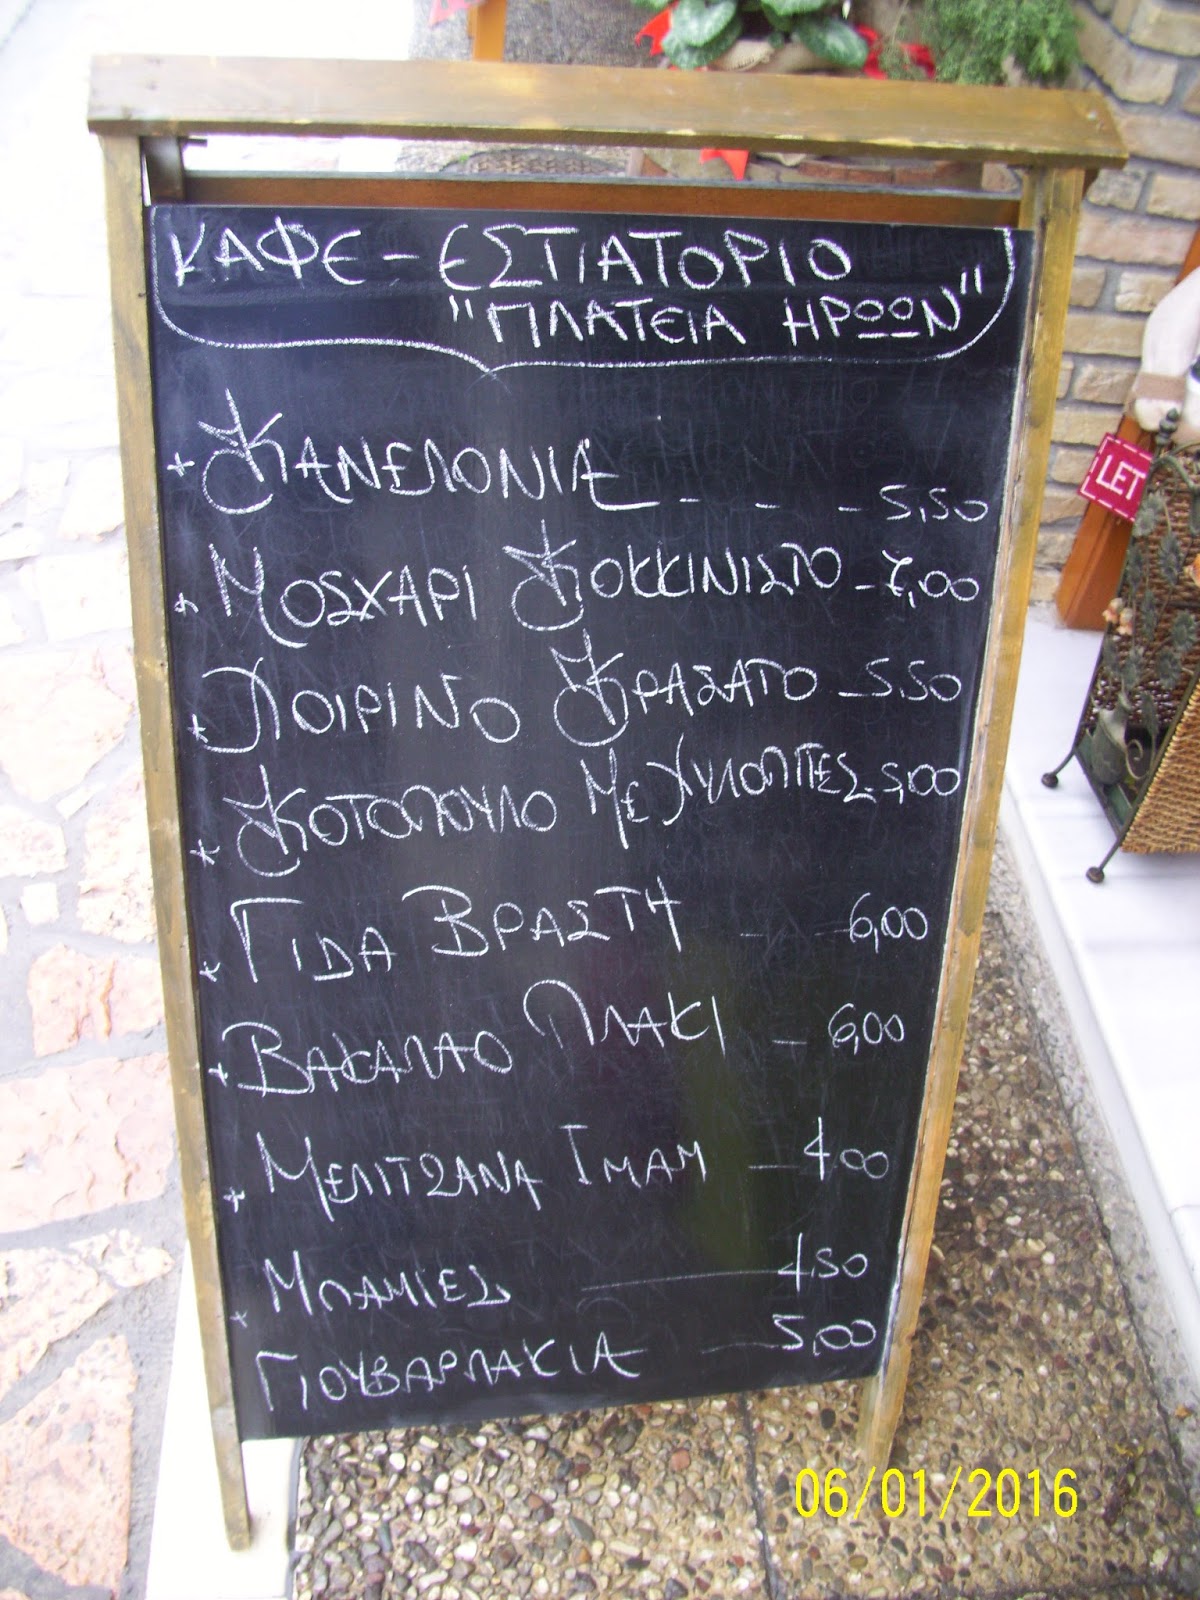 ΚΑΦΕ - ΕΣΤΙΑΤΟΡΙΟ
"ΠΛΑΤΕΙΑ ΗΡΩΩΝ"
+ ΚΑΝΕΛΟΝΙΑ - - - 5,50
+ ΜΟΣΧΑΡΙ ΚΟΚΚΙΝΙΣΤΟ - 7,00
+ ΧΟΙΡΙΝΟ ΚΡΑΣΑΤΟ - 5.50
+ ΚΟΤΟΠΟΥΛΟ ΜΕ ΧΥΛΟΠΙΤΕΣ - 5,00
+ ΓΙΔΑ ΒΡΑΣΤΗ - - 6,00
+ ΒΑΚΑΛΑΟ ΠΛΑΚΙ - 6,00
+ ΜΕΛΙΤΖΑΝΑ ΙΜΑΜ - 4,00
+ ΜΠΑΜΙΕΣ - 4,50
ΓΙΟΥΒΑΡΛΑΚΙΑ - 5,00
LET
06/01/2016